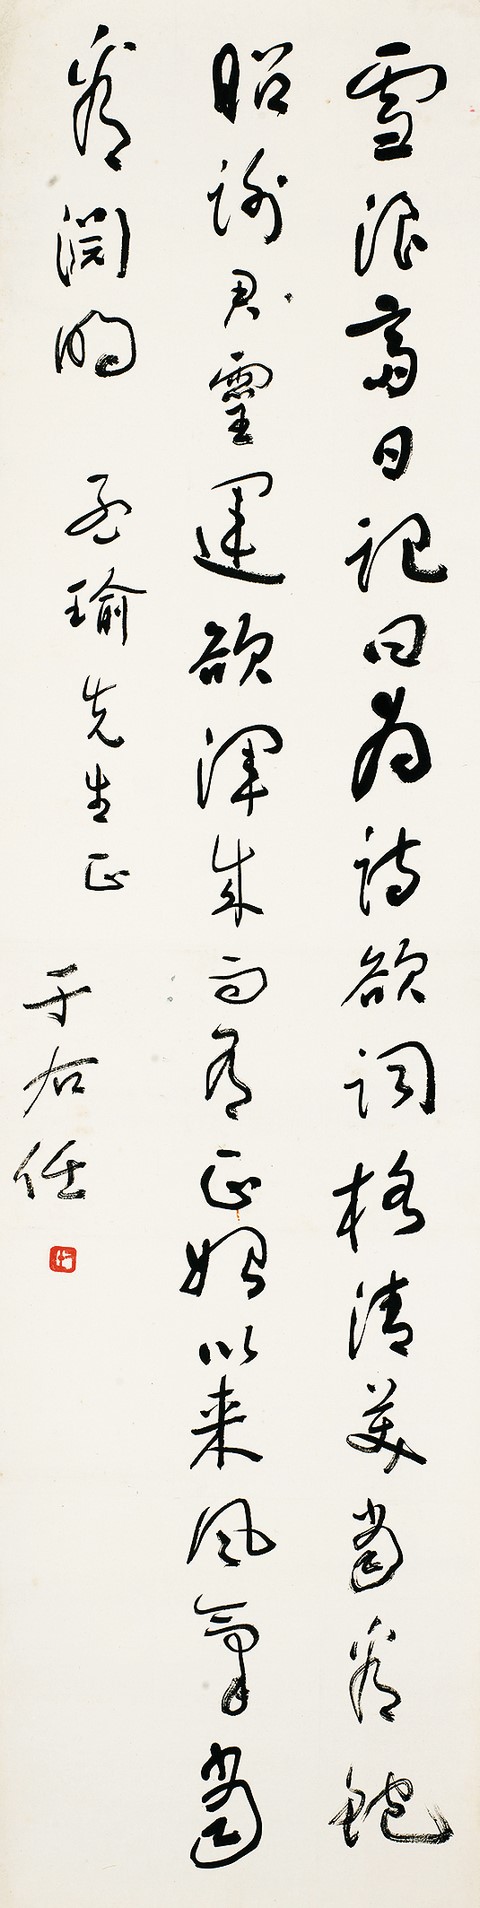 雪浪斋日记曰为诗欲词格清美当看鲍
照谢灵运欲浑成而有正始以来风气当
看渊明
孟瑜先生正
于右任